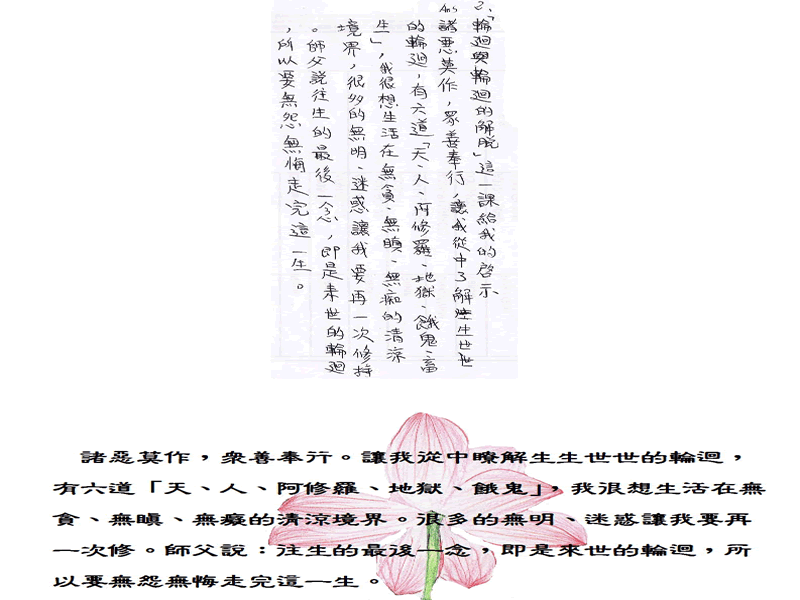 2、「輪迴與輪迴的解脫」這一課給我的啓示
Ans 諸惡莫作，眾善奉行，讓我從中了解生生世世
的輪迴，有六道「天、人、阿修羅、地獄、餓鬼、畜
生」，我很想生活在無貪、無瞋、無痴的清涼
境界，很多的無明、迷惑讓我要再一次修持
。師父說往生的最後一念，即是來世的輪迴
，所以要無怨無悔走完這一生。
諸惡莫作，眾善奉行。讓我從中瞭解生生世世的輪迴，
有六道「天、人、阿修羅、地獄、餓鬼」，我很想生活在無
貪、無瞋、無癡的清涼境界。很多的無明、迷惑讓我要再
一次修。師父說：往生的最後一念，即是來世的輪迴，所
以要無怨無悔走完這一生。